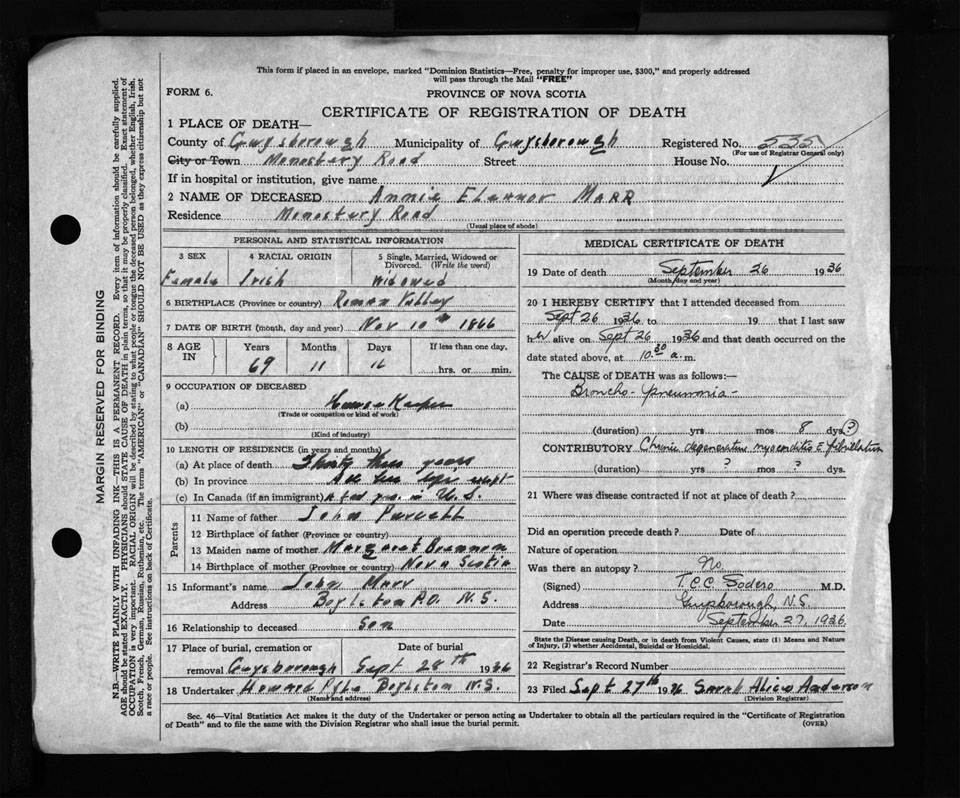 This form if placed in an envelope, marked "Dominion Statistics—Free, penalty for improper use, $300," and properly addressed
will pass through the Mail "FREE"
FORM 6.
PROVINCE OF NOVA SCOTIA
CERTIFICATE OF REGISTRATION OF DEATH
1 PLACE OF DEATH—
County of Guysborough Municipality of Guysborough Registered No. 535
(For use of Registrar General only)
City or Town Monastery Road Street House No.
If in hospital or institution, give name
2 NAME OF DECEASED Annie Elennor MARR
Residence Monastery Road
(Usual place of abode)
PERSONAL AND STATISTICAL INFORMATION
3 SEX 4 RACIAL ORIGIN 5 Single, Married, Widowed or
Divorced. (Write the word)
Female Irish Widowed
6 BIRTHPLACE (Province or country) Roman Valley
7 DATE OF BIRTH (month, day and year) Nov 10th 1866
8 AGE IN Years Months Days If less than one day,
69 11 16 hrs. or min.
9 OCCUPATION OF DECEASED
(a) House Keeper
(Trade or occupation or kind of work)
(b)
(Kind of industry)
10 LENGTH OF RESIDENCE (in years and months)
(a) At place of death Thirty three years
(b) In province All her life except
(c) In Canada (if an immigrant) a few yrs. in U.S.
Parents
11 Name of father John Purcell
12 Birthplace of father (Province or country)
13 Maiden name of mother Margaret
14 Birthplace of mother (Province or country) Nova Scotia
15 Informant's name John Marr
Address Boylston P.O. N.S.
16 Relationship to deceased Son
17 Place of burial, cremation or Date of burial
removal Guysborough Sept 28th 1936
18 Undertaker Howard Boylston N.S.
(Name and address)
MEDICAL CERTIFICATE OF DEATH
19 Date of death September 26 1936
(Month, day and year)
20 I HEREBY CERTIFY that I attended deceased from
Sept 26 1936 to 19 that I last saw
her alive on Sept 26 1936 and that death occurred on the
date stated above, at 10.30 a. m.
The CAUSE of DEATH was as follows:—
Broncho-pneumonia-
(duration) yrs mos 8 dys (?)
CONTRIBUTORY Chronic degenerative myocarditis c fibrillation
(duration) yrs. ? mos. ? dys.
21 Where was disease contracted if not at place of death?
Did an operation precede death? Date of
Nature of operation
Was there an autopsy? No.
(Signed) T.C.C. Sodero M.D.
Address Guysborough, N.S.
Date September 27, 1936.
State the Disease causing Death, or in death from Violent Causes, state (1) Means and Nature
of Injury, (2) whether Accidental, Suicidal or Homicidal.
22 Registrar's Record Number
23 Filed Sept 27th 1936 Sarah Alice Anderson
(Division Registrar)
Sec. 46—Vital Statistics Act makes it the duty of the Undertaker or person acting as Undertaker to obtain all the particulars required in the "Certificate of Registration
of Death" and to file the same with the Division Registrar who shall issue the burial permit. (OVER)
MARGIN RESERVED FOR BINDING
N.B.—WRITE PLAINLY WITH UNFADING INK—THIS IS A PERMANENT RECORD. Every item of information should be carefully supplied.
AGE should be stated EXACTLY. PHYSICIANS should STATE CAUSE OF DEATH in plain terms, so that it may be properly classified. Exact statement of
OCCUPATION is very important. RACIAL ORIGIN will be described by stating to what people or tongue the deceased person belonged, whether English, Irish,
Scotch, French, German, Russian, Ruthenian, etc. The terms "AMERICAN" or "CANADIAN" SHOULD NOT BE USED as they express citizenship but not
a race or people. See instructions on back of Certificate.